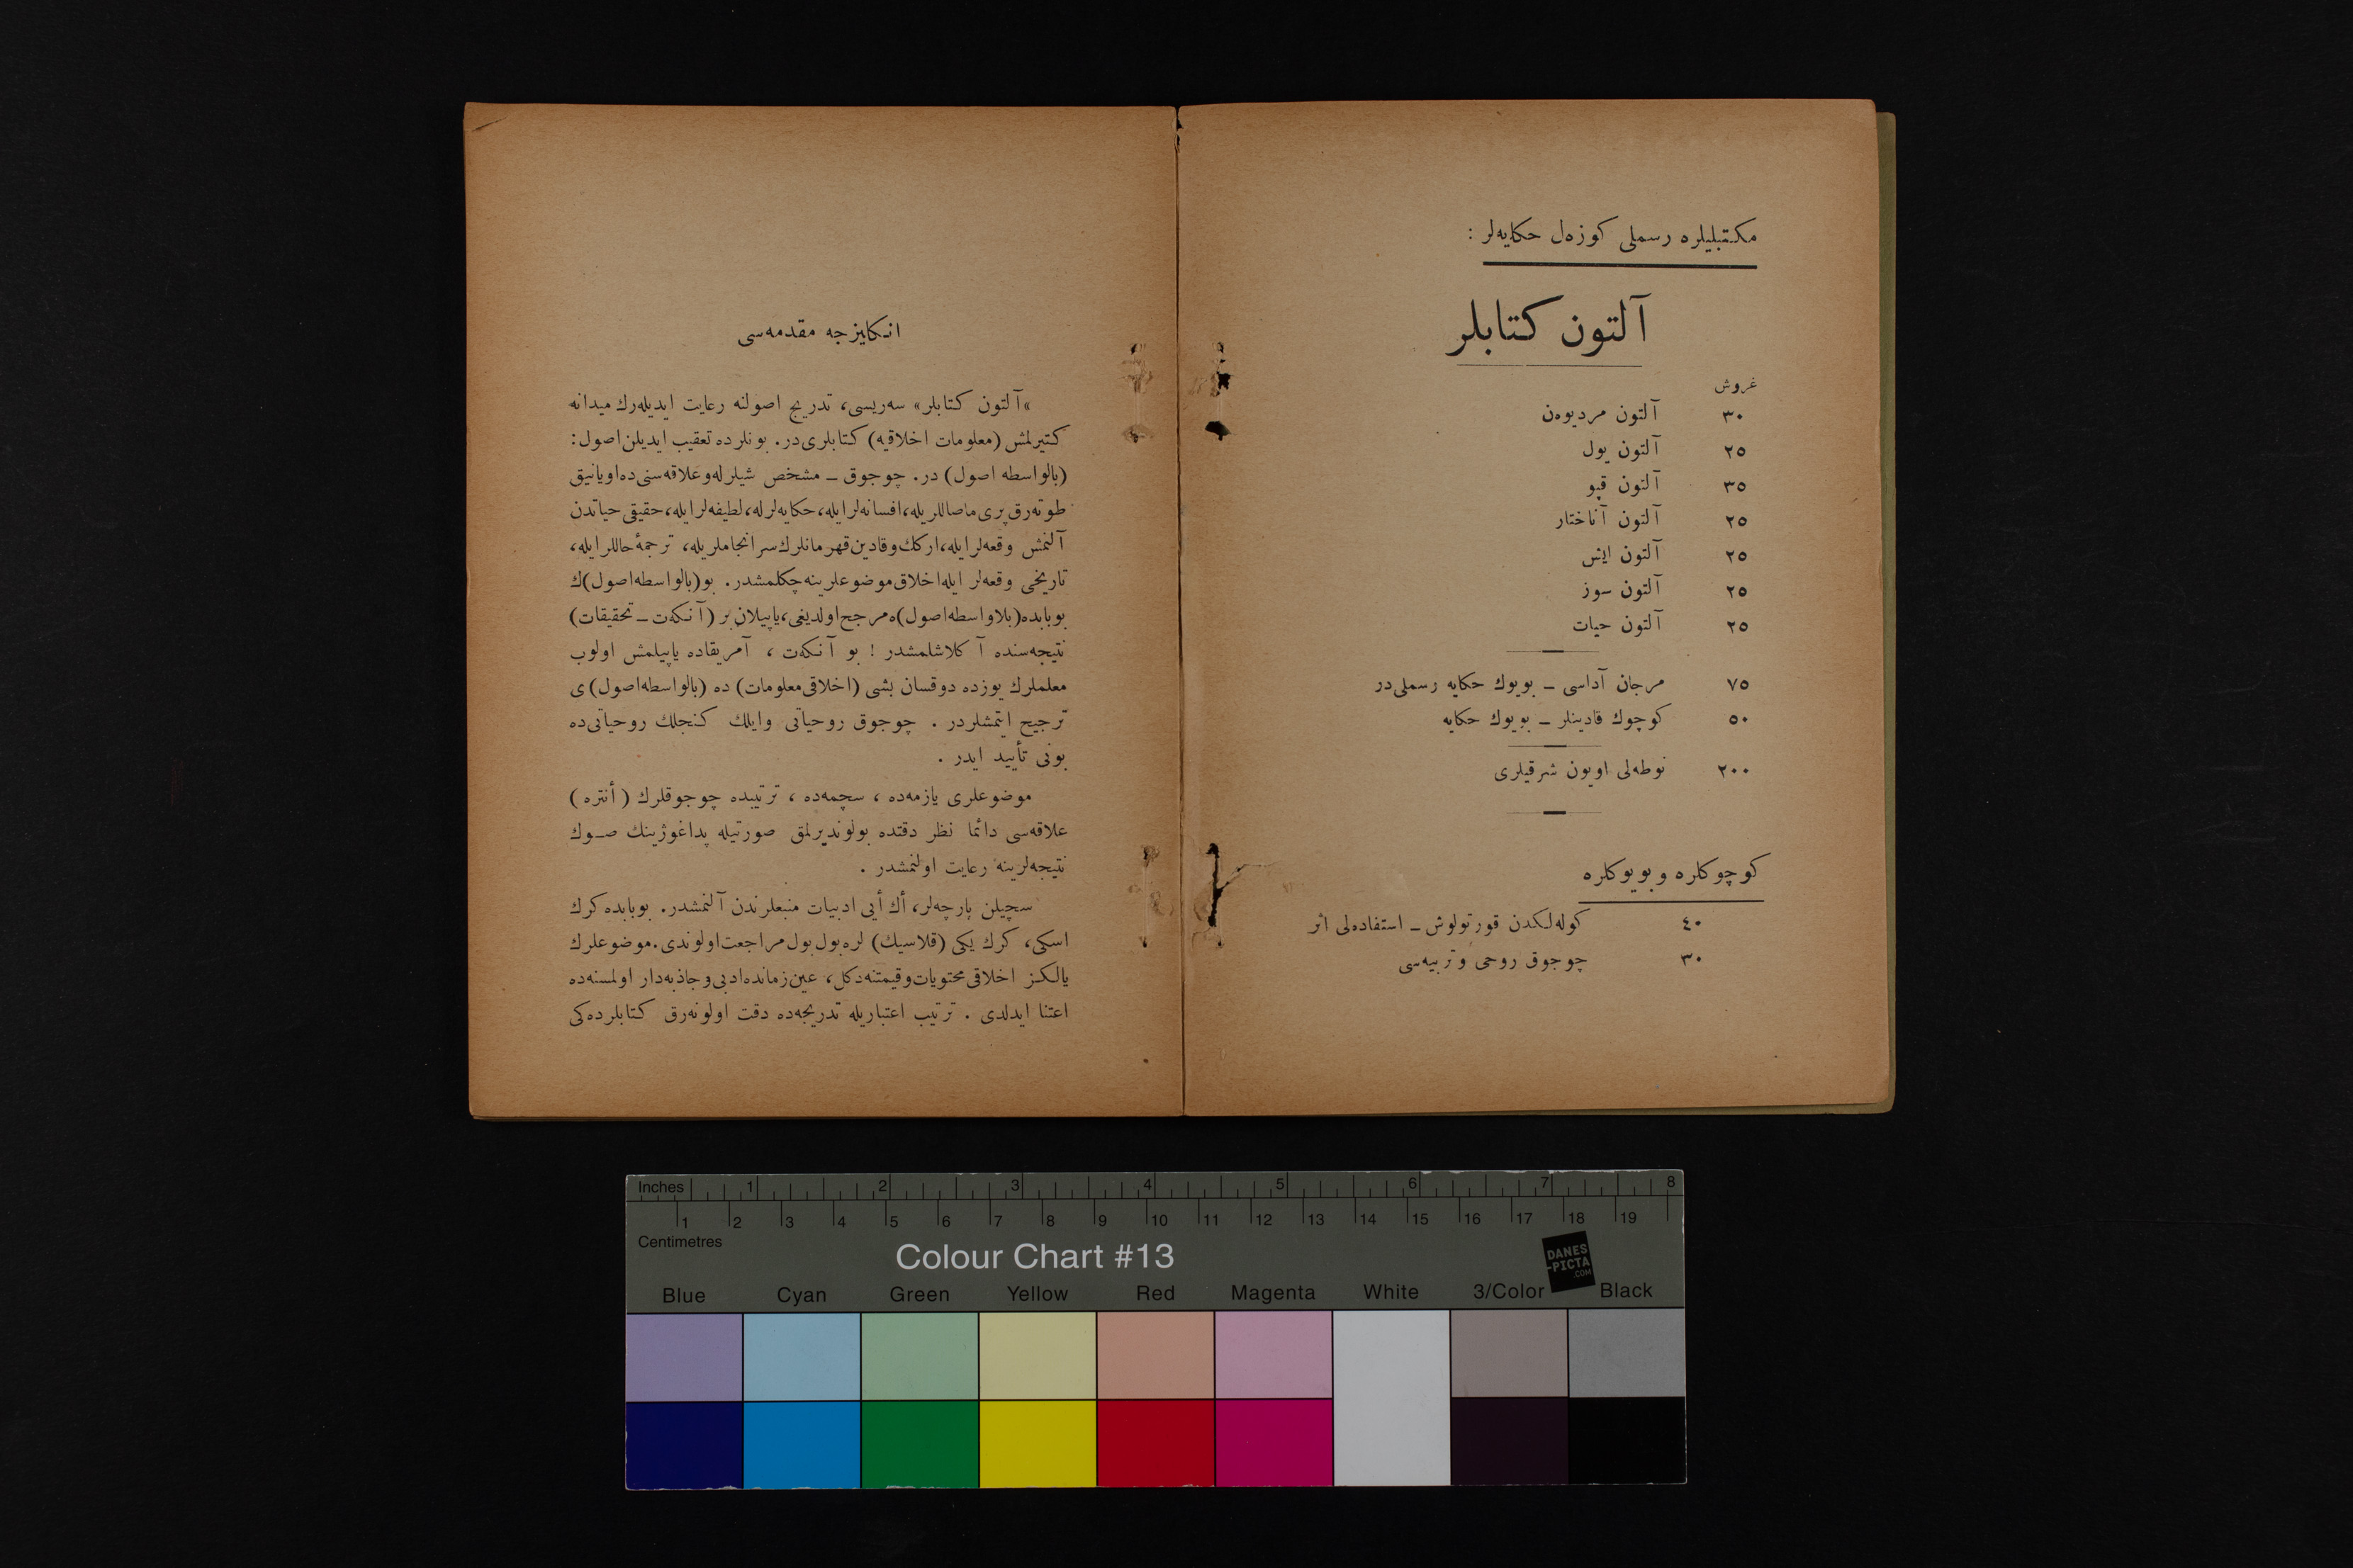 مكتبليلره رسملی كوزه‌ل حكايه‌لر :
آلتون كتابلر
غروش
٣٠ آلتون مرديوه‌ن
٢٥ آلتون يول
٣٥ آلتون قپو
٢٥ آلتون آناختار
٢٥ آلتون ايش
٢٥ آلتون سوز
٢٥ آلتون حيات
٧٥ مرجان آداسی ــ بويوك حكايه رسملی‌در
٥٠ كوچوك قادينلر ــ بويوك حكايه
٢٠٠ نوطه‌لی اويون شرقيلری
كوچوكلره وبويوكلره
٤٠ كوله‌لكدن قورتولوش ــ استفاده‌لی اثر
٣٠ چوجوق روحی وتربيه‌سی
انكليزجه مقدمه‌سی
«آلتون كتابلر» سه‌ريسی، تدريج اصولنه رعايت ايديله‌رك ميدانه
كتيرلمش (معلومات اخلاقيه) كتابلری‌در. بونلرده تعقيب ايديلن اصول:
(بالواسطه اصول) در. چوجوق ــ مشخص شيلرله‌وعلاقه‌سنی‌ده‌اويانيق
طوته‌رق پری ماصاللريله، افسانه‌لرايله، حكايه‌لرله، لطيفه‌لرايله، حقيقی حياتدن
آلنمش وقعه‌لرايله، اركك وقادين قهرمانلرك سرانجاملريله، ترجمهٔ حاللرايله،
تاريخی وقعه‌لر ايله اخلاق موضوعلرينه چكلمشدر. بو (بالواسطه اصول)ك
بوبابده (بلاواسطه اصول)ه مرجح اولديغی، ياپيلان بر (آنكه‌ت ــ تحقيقات)
نتيجه‌سنده آكلاشلمشدر ! بو آنكه‌ت ، آمريقاده ياپيلمش اولوب
معلملرك يوزده دوقسان بشی (اخلاقی معلومات) ده (بالواسطه اصول) ی
ترجيح ايتمشلردر . چوجوق روحياتی وايلك كنجلك روحياتی‌ده
بونی تأييد ايدر .
موضوعلری يازمه‌ده ، سچمه‌ده ، ترتيبده چوجوقلرك (أنتره )
علاقه‌سی دائما نظر دقتده بولونديرلمق صورتيله پداغوژينك صــوك
نتيجه‌لرينه رعايت اولنمشدر .
سچيلن پارچه‌لر، أك أيی ادبيات منبعلرندن آلنمشدر. بوبابده كرك
اسكی، كرك يكی (قلاسيك) لره بول بول مراجعت اولوندی. موضوعلرك
يالكز اخلاقی محتويات وقيمتنه دكل، عين زمانده ادبی وجاذبه‌دار اولمسنه‌ده
اعتنا ايدلدی . ترتيب اعتباريله تدريجه‌ده دقت اولونه‌رق كتابلرده‌كی
Inches 1 2 3 4 5 6 7 8
1 2 3 4 5 6 7 8 9 10 11 12 13 14 15 16 17 18 19
Centimetres
Colour Chart #13
DANES
-PICTA
.COM
Blue Cyan Green Yellow Red Magenta White 3/Color Black